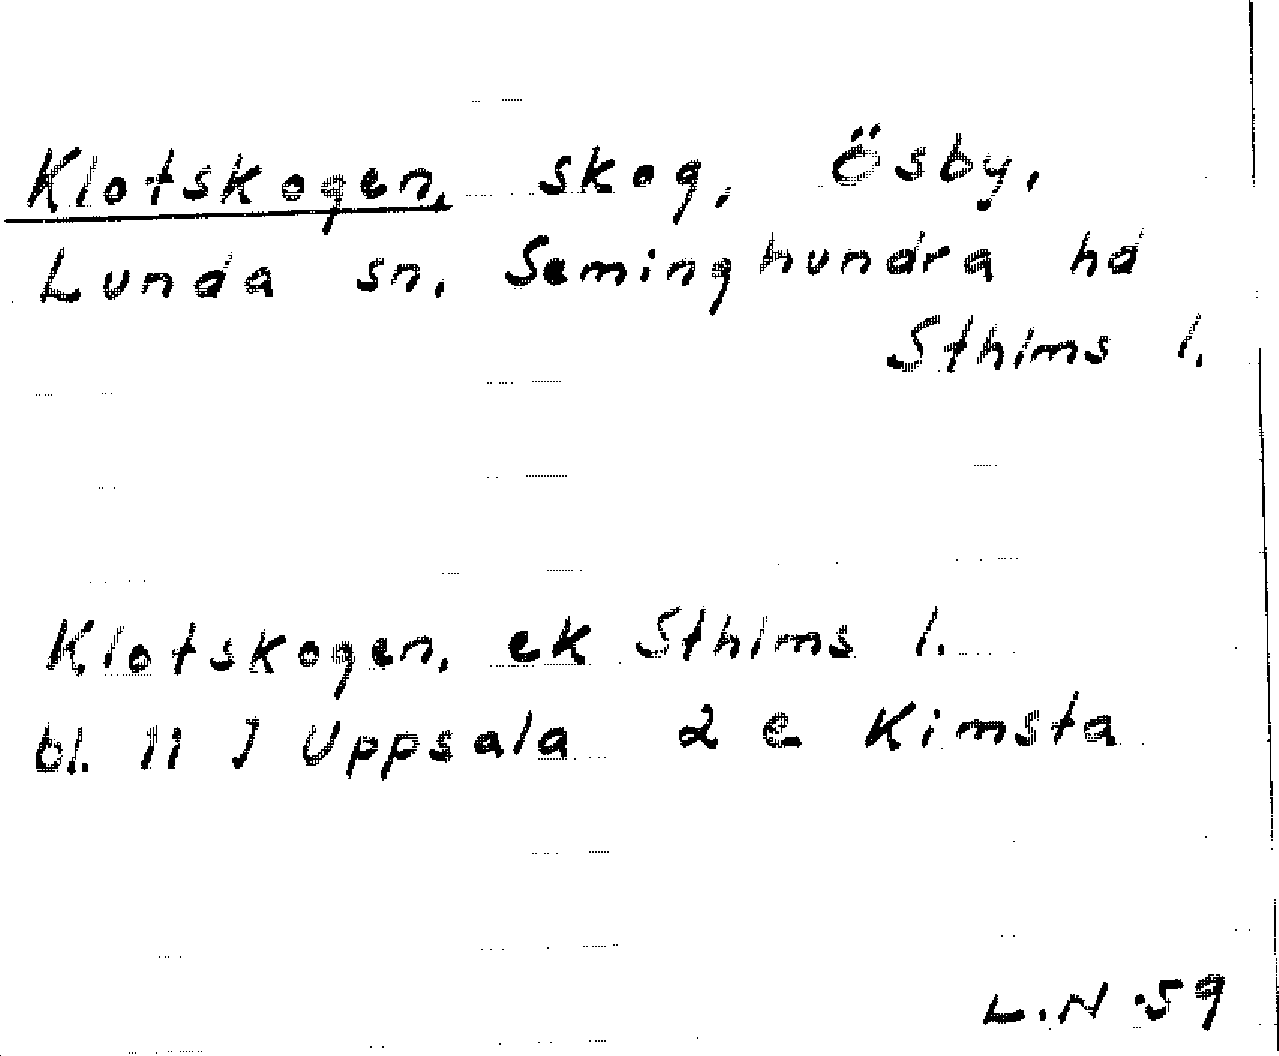 Klotskogen, skog, Ösby,
Lunda sn. Seminghundra hd
Sthlms l.
Klotskogen, ek Sthlms l.
bl. 11 J Uppsala 2 e Kimsta
L.N .59